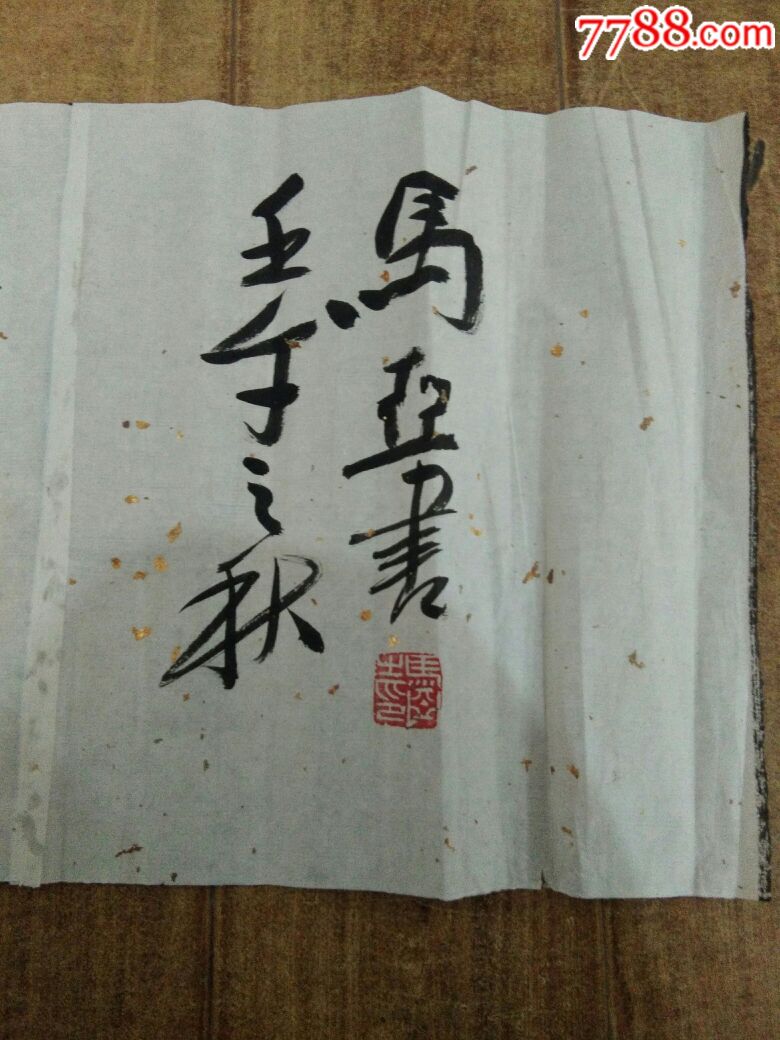 7788.com
馬 書
壬午之秋